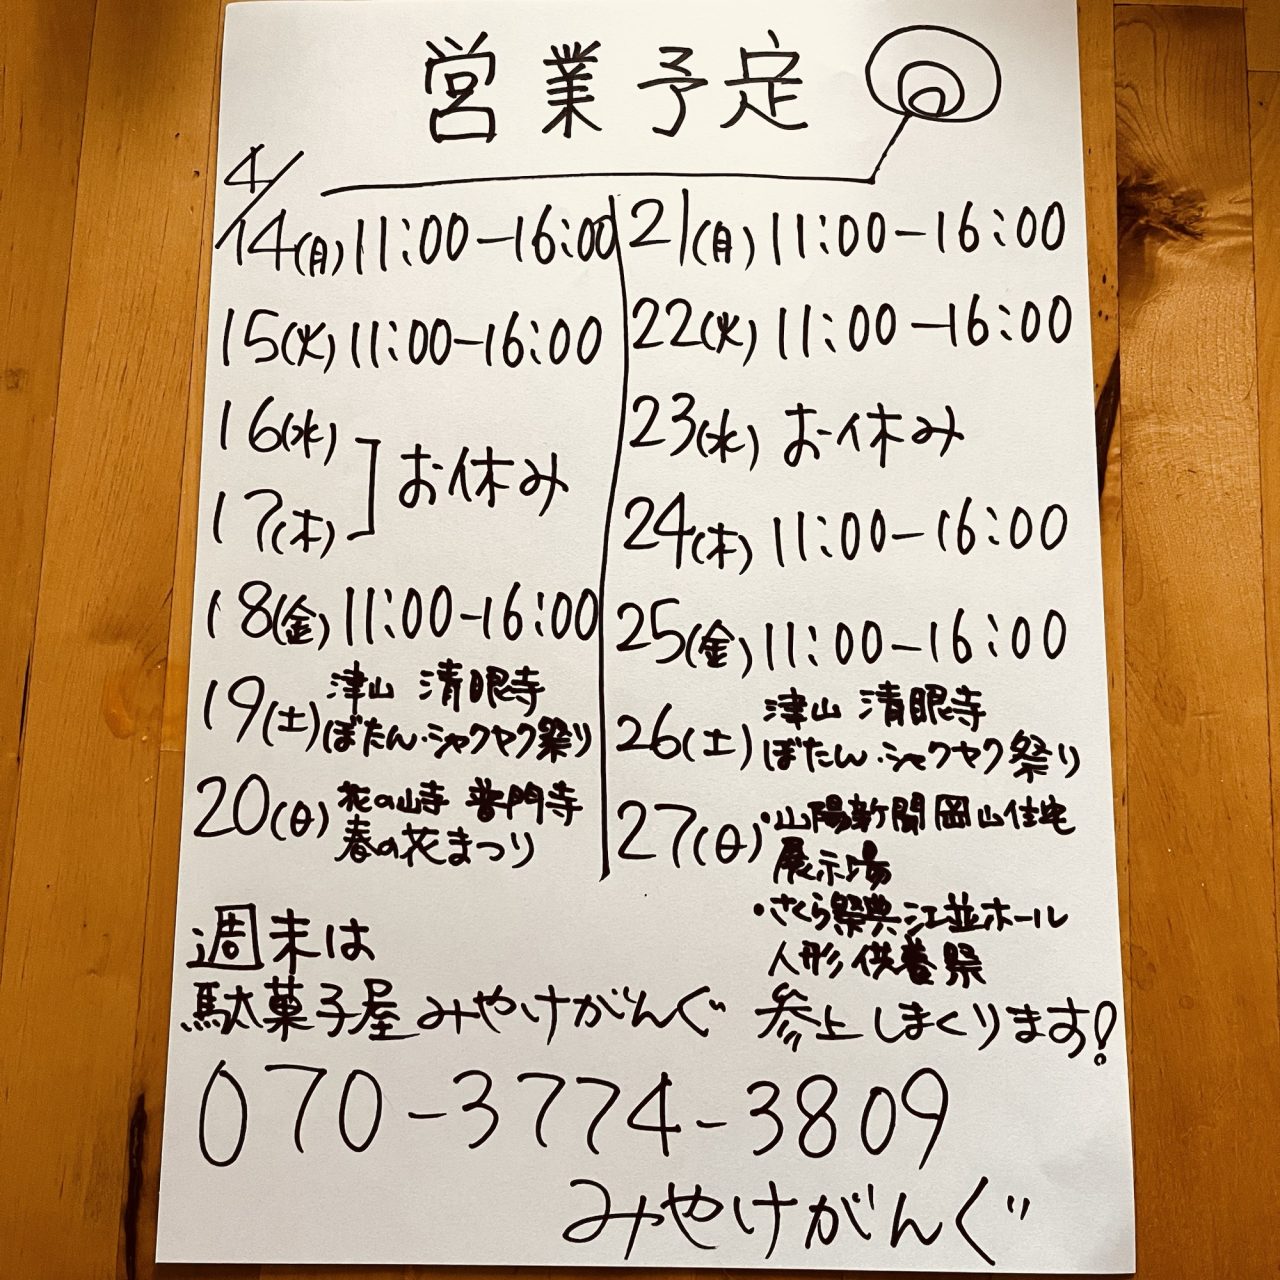 営業予定
4/
14(月) 11:00-16:00
15(火) 11:00-16:00
16(水)
17(木)
お休み
18(金) 11:00-16:00
19(土) 津山 清眼寺
ぼたん・シャクヤク祭り
20(日) 花の山寺 普門寺
春の花まつり
21(月) 11:00-16:00
22(火) 11:00-16:00
23(水) お休み
24(木) 11:00-16:00
25(金) 11:00-16:00
26(土) 津山 清眼寺
ぼたん・シャクヤク祭り
27(日)・山陽新聞岡山住宅
展示場
・さくら祭典江並ホール
人形供養祭
週末は
駄菓子屋みやけがんぐ 参上しまくります!
070-3774-3809
みやけがんぐ